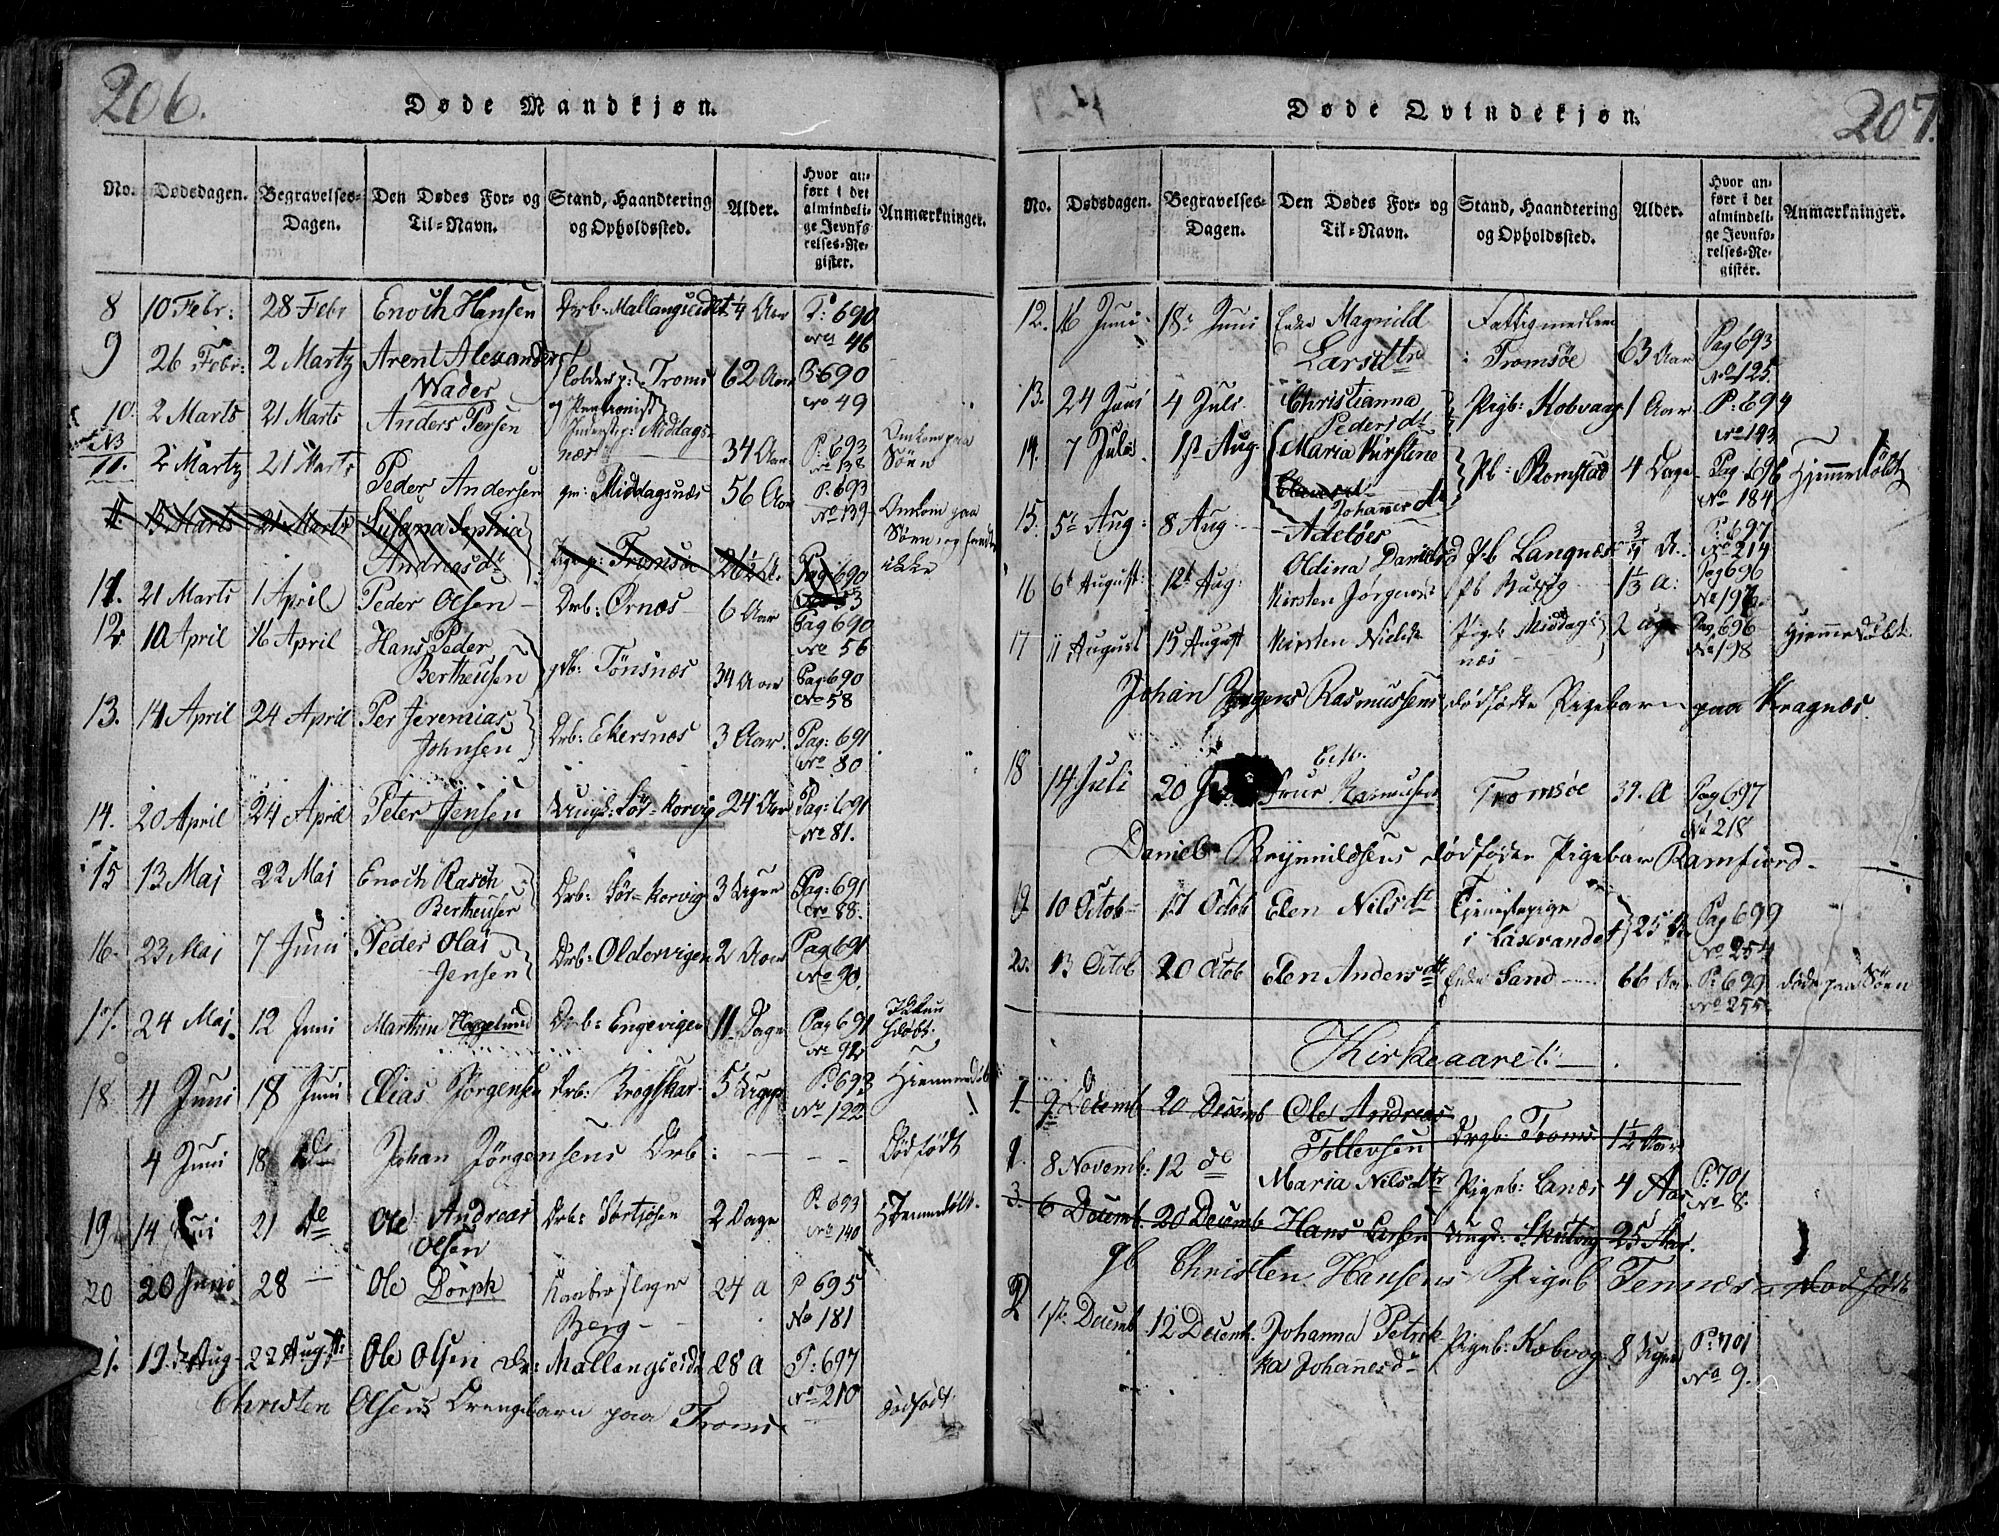 206.
Døde Mandkjøn.
No. Dødsdagen. Begravelses-Dagen. Den Dødes For- og Til-Navn. Stand, Haandtering og Opholdssted. Alder. Hvor anført i det almindelige Jevnførelses-Register. Anmærkninger.
8 10 Febr: 28 Febr Enoch Hansen Drb: Mallangseidet 1/4 Aar P: 690
No 46
9 26 Febr: 2 Martz Arent Alexander 62 Aar P: 690
Wader No 49
10. 2 Marts 21 Marts Anders Persen Middags-
næs 34 Aar P: 693 Omkom paa
No 138 Søen
11. 2 Martz 21 Marts Peder Andersen gm: Middagsnæs 56 Aar P: 693 Omkom paa
No 139 Søen og
ikke
21 Marts Susana Sophia
Andreasdt Tromsøe Pag 690
11. 21 Marts 1 April Peder Olsen Drb: Ørnæs 6 Aar Pag 690
12 10 April 16 April Hans Peder No 56
Bertheusen Tønsnæs 34 Aar Pag 690
No 58
13. 14 April 24 April Per Jeremias
Johnsen Drb: Ekersnæs 3 Aar. Pag: 691
No 80
14. 20 April 24 April Peter Jensen Ungk: Sør-Korvig 24 Aar Pag: 691
No 81.
15 13 Maj 22 Maj Enoch Rasch
Bertheusen Drb: Sør-Korvig 3 Uger Pag: 691
No 88.
16. 23 Maj 7 Juni Peder Olai
Jensen Drb: Oldervigen 2 Aar Pag 691
No 90.
17. 24 Maj. 12 Juni Marthin Hagelund Drb: Engevigen 11 Dage Pag 691
No 92
18. 4 Juni 18 Juni Elias Jørgensen Drb: 5 Uger P: 692 Hjemmedøbt
No 122
4 Juni 18 de Johan Jørgensens Drb: Dødfødt
19 14 Juni 21 de Ole Andreas Drb: 2 Dage P: 693 Hjemmedøbt.
Olsen No 140
20 20 Juni 28 — Ole Dorph 24 a P 695
Berg No 181
21. 19 de Aug 22 Aug Ole Olsen Dr: Mallangseidet 28 a P: 697
No 210
Christen Olsens Drengebarn paa Tromsø Dødfødt
207.
Døde Qvindekjøn.
No. Dødsdagen. Begravelses-Dagen. Den Dødes For- og Til-Navn. Stand, Haandtering og Opholdssted. Alder. Hvor anført i det almindelige Jevnførelses-Register. Anmærkninger.
12. 16 Juni 18 Juni Enke Magnild Fattigmedlem
Larsdtr i Tromsøe 63 Aar Pag 693
No 125.
13. 24 Juni 4 Juli Christianna Pigb: Kobvaag 1 Aar P: 694
Pedersdt No 143
14. 7 Juli 1st Aug. Maria Kirstine Pb: Bomstad 4 Dage Pag 696 Hjemmedøbt
Johannesdt No 184
15. 5 Aug: 8 Aug Adeløes
Oldina Danielsd Pb Langnæs 3/4 A. P: 697
No 214
16 6t August: 12t Aug: Kirsten Jørgens 1/3 A: Pag 696
No 197.
17 11 August 15 August Kirsten Nielsd Pigb: Middags
næs 2 uger Pag 696 Hjemmedøbt
No 198
Johan Jørgens Rasmussens dødfødte Pigebarn paa Kragnæs.
18 14 Juli 20 Frue Rasmusen Tromsøe 39. A Pag 697
No 218
Daniel Brynnildsens dødfødte Pigebar Ramfiord.
19. 10 Octob 17 Octob Elen Nilsdt Tjenestepige
i Laxevandet 25 A Pag 699
No 254
20. 13 Octob 20 Octob Elen Andersdt Enke Sand 66 Aar P: 699 døde paa Søen
No 255.
Kirkeaaret
1. 9 Decemb 20 Decemb Ole Andreas
Tollevsen Drgb: Troms 1 1/2 Aar
1. 8 Novemb: 12 de Maria Nilsdtr Pigeb: Lanæs 4 Aar P: 701
No 8.
3. 6 Decemb. 20 Decemb Hans Larsen Ungd. 25 Aar.
Christen Hansens Pigeb Tennæs Dødfødt
2 1st Decemb 12 Decemb. Johanna Petrik-
ka Johanesd Pigeb: Kobvog 8 Uger P: 701
No 9.